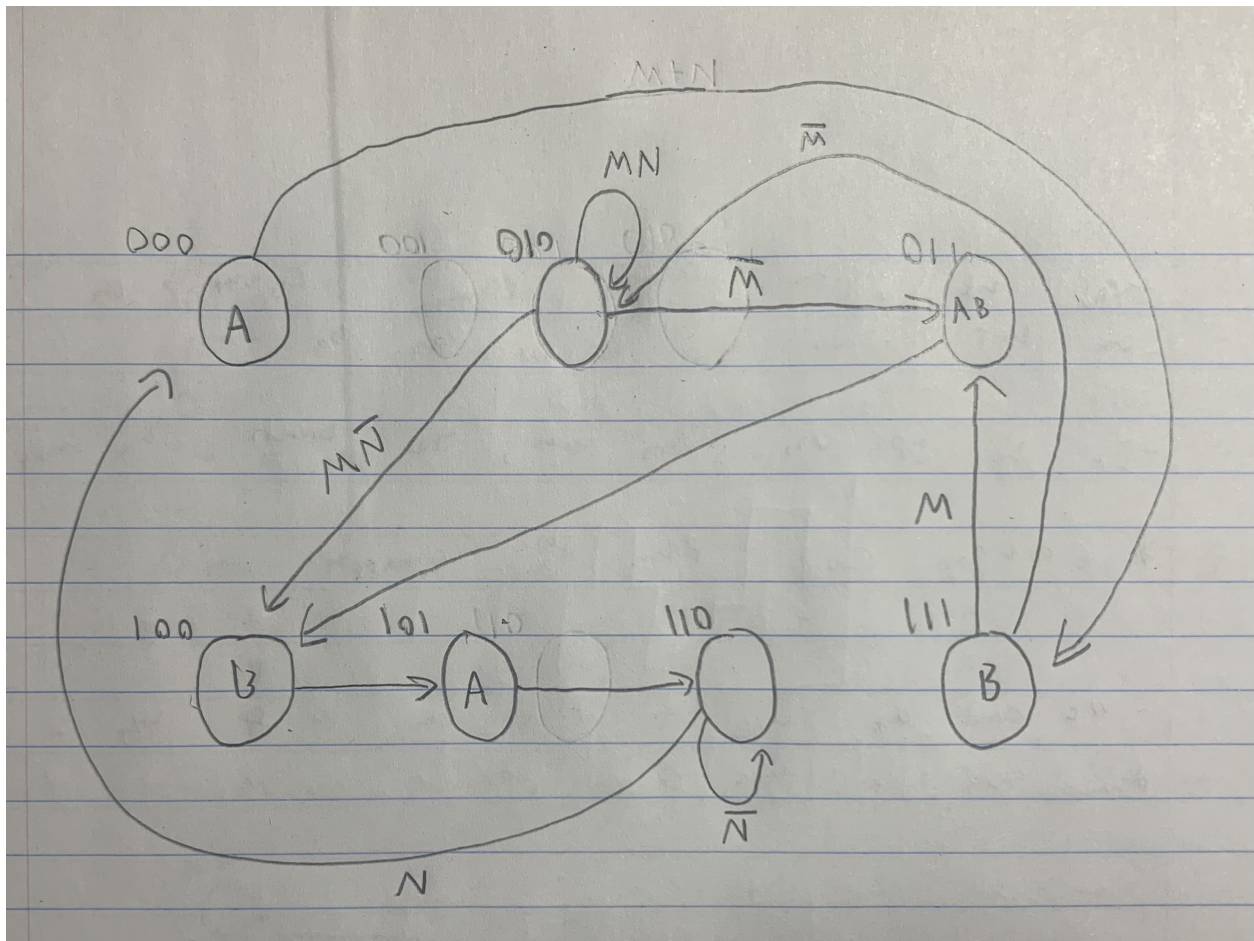 M+N
M̅
MN
000
010
011
A
M̅
AB
MN̅
M
100
101
110
111
B
A
B
N̅
N